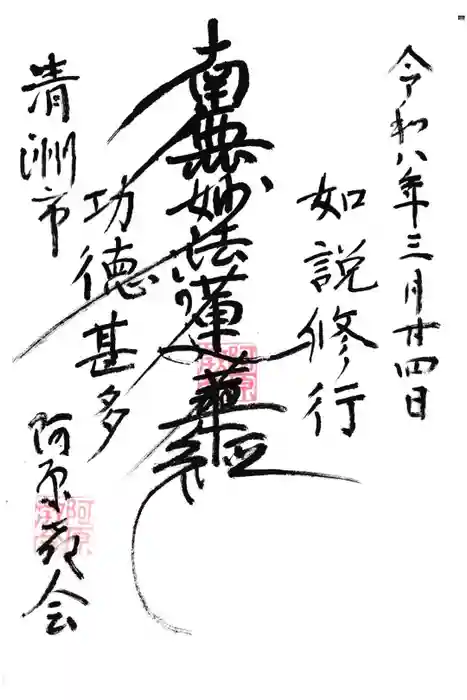 令和八年三月廿四日
如説修行
南無妙法蓮華経
功徳甚多
清洲市
阿原教会